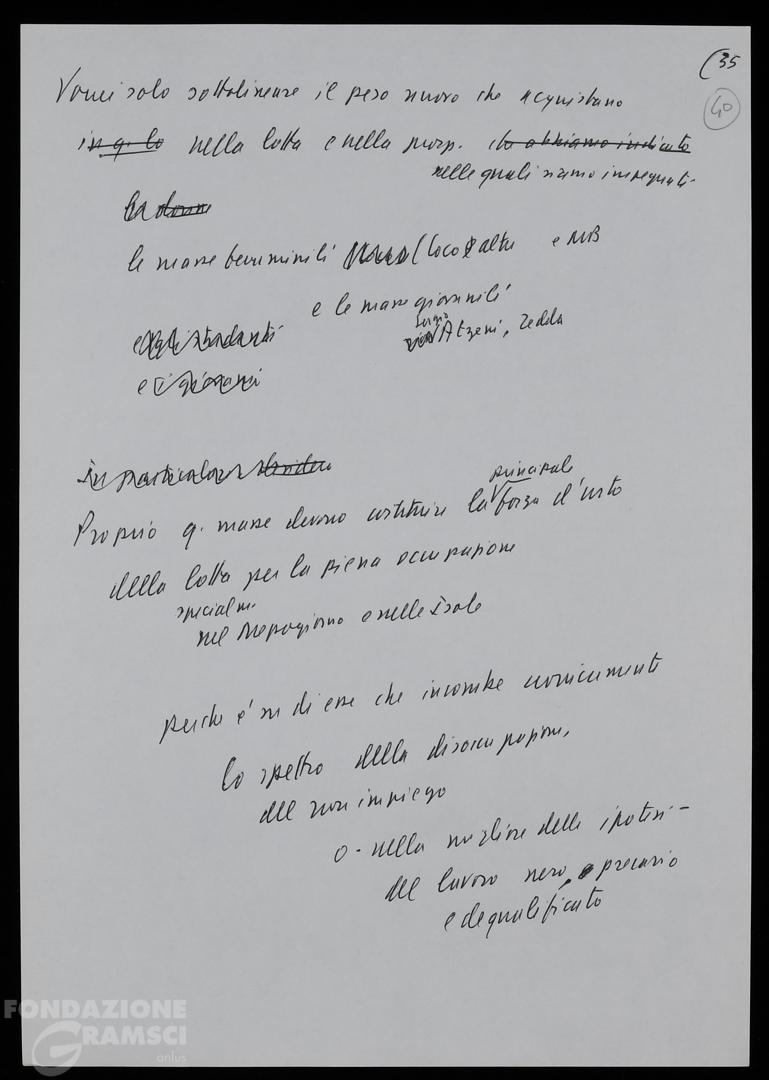 35
40
Vorrei solo sottolineare il peso nuovo che acquistano
in q. lo nella lotta e nella prosp. che abbiamo indicato
nelle quali siamo impegnati
la donne
le masse femminili (Loco e altre e MB
e le masse giovanili
e gli studenti
Sergio
Atzeni, Zedda
e i giovani
In particolare
principale
Proprio q. masse devono costituire la forza d'urto
della lotta per la piena occupazione
specialm.
nel Mezzogiorno e nelle Isole
perché è su di esse che incombe cronicamente
lo spettro della disoccupazione,
del non impiego
o - nella migliore delle ipotesi -
del lavoro nero, precario
e dequalificato
FONDAZIONE
GRAMSCI
onlus